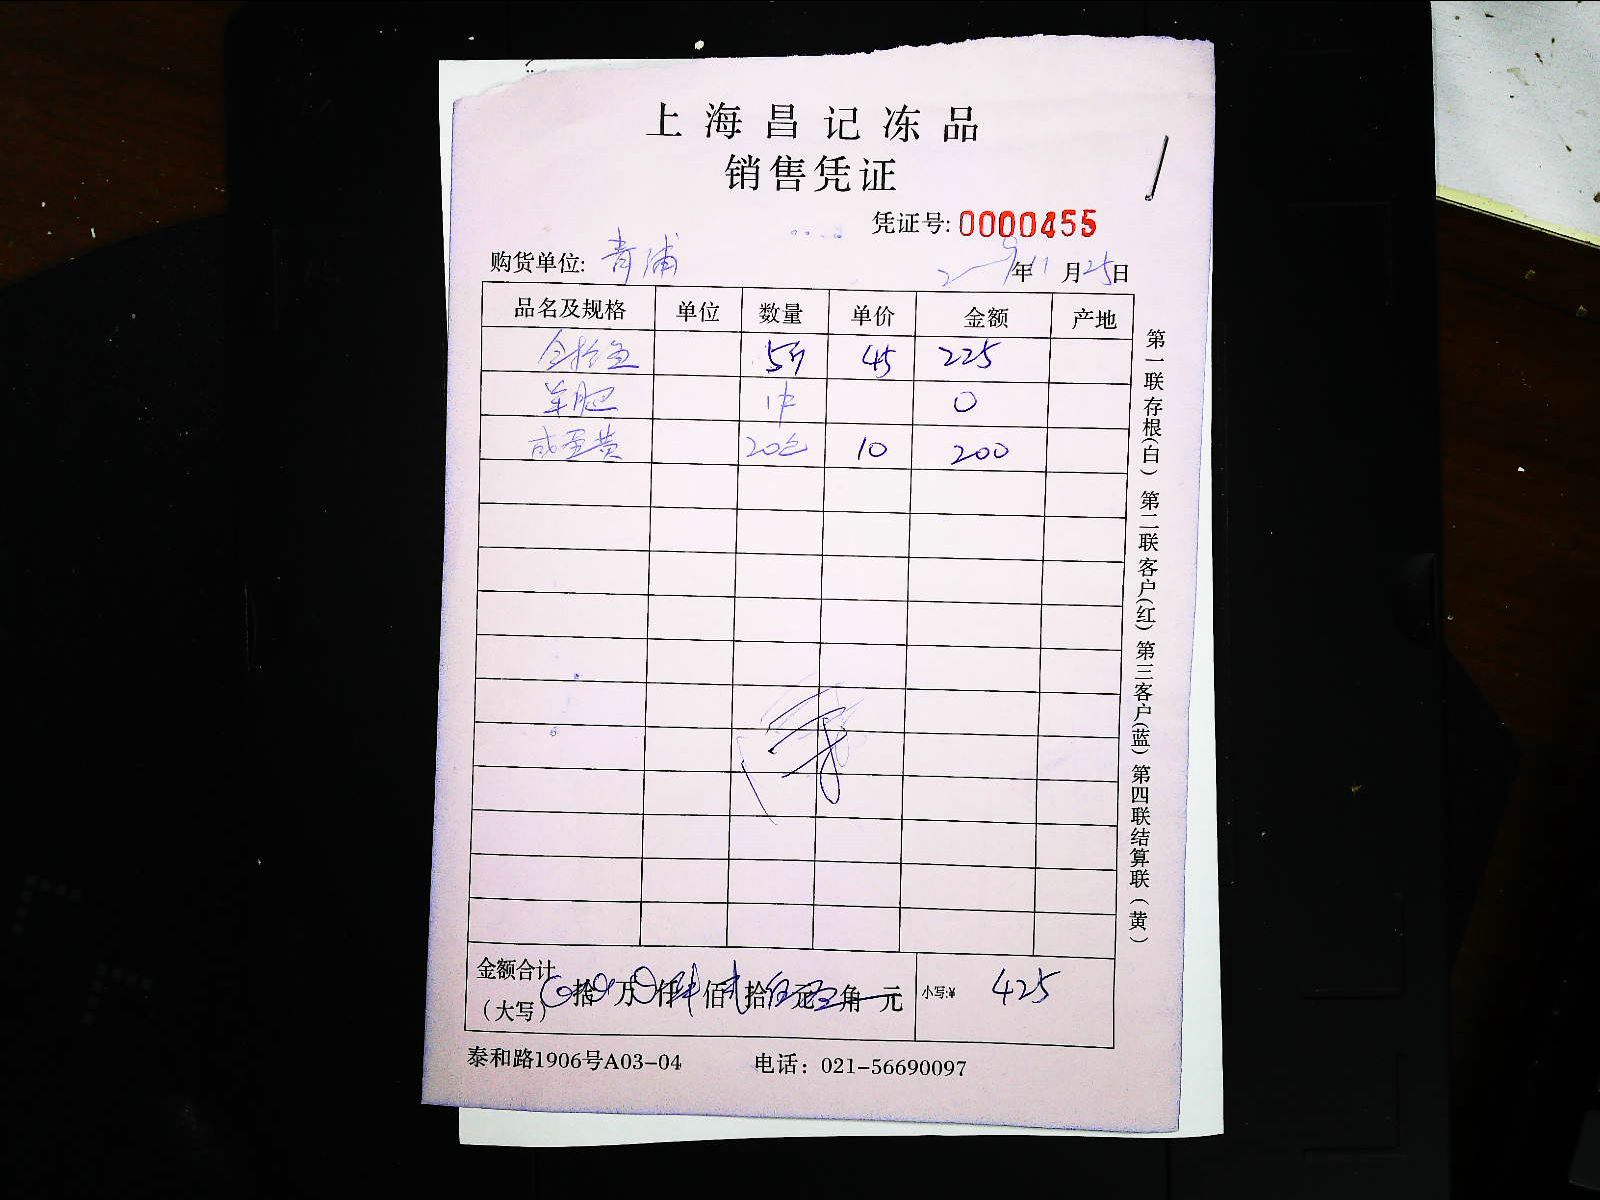 上海昌记冻品
销售凭证
凭证号: 0000455
购货单位: 青浦 年11月25日
品名及规格 单位 数量 单价 金额 产地
5斤 45 225
羊肥 0
20包 10 200
金额合计
(大写) 拾 万 仟 肆 佰 贰 拾 伍 元 角 元 小写:¥ 425
泰和路1906号A03-04 电话: 021-56690097
第一联存根(白) 第二联客户(红) 第三客户(蓝) 第四联结算联(黄)